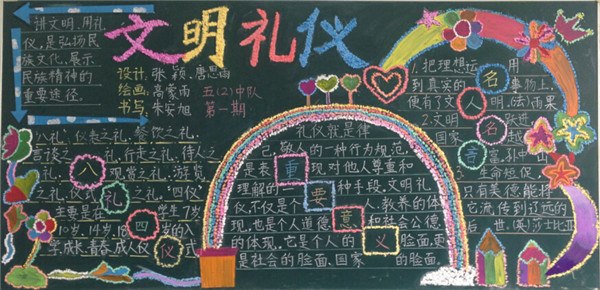 文明礼仪
讲文明、用礼
仪,是弘扬民
族文化、展示
民族精神的
重要途径。
设计: 张 颖、唐思雨
绘画: 高蒙雨 五(2)中队
书写: 朱安旭 第一期
"八礼": 仪表之礼、餐饮之礼、
言谈之礼、行走之礼、待人之
礼、观赏之礼、游览
之礼、仪式之礼。"四仪"
主要是在 学生7岁
10岁、14岁、18岁的入
学、成长、青春、成人仪式
八礼四仪
礼仪就是律
己、敬人的一种行为规范,
是表现对他人尊重和
理解的 种手段。文明礼
仪,不仅是个人 教养的体
现,也是个人道德和社会公德
的体现。它是个人的 脸面,更
是社会的脸面、国家 的脸面。
重要意义
1.把理想运用
到真实的 事物上,
便有了文明。(法)雨果
2.文明
国家
富。孙中山
生命短促,
只有美德能将
它流传到辽远的
后世。(英)莎士比亚
名人名言